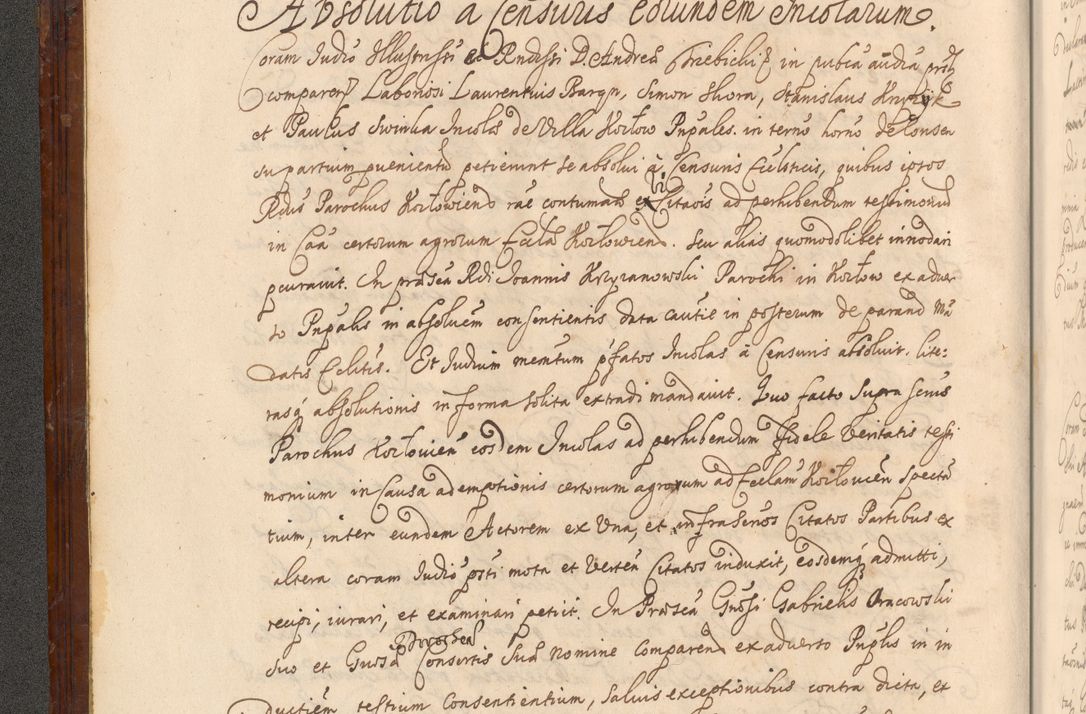 Absolutio a Censuris eorundem Incolarum.
Coram Judio Illustrissi et Rndissi D. Andrea Trzebicki in pubca audia prstz
comparen Laboriosi Laurentius Bargn, Simon Skora, Stanislaus Krzyżyk
et Paulus Swinka Incolæ de Villa Kozłow Pnpales. in termo horno de Consen
su partium pueniente petierunt se absolui à Censuris Ecclsticis, quibus ipsos
Rdus Parochus Kozłowiens rae contumac ex Citaois ad perhibendum testimoniu
in Caa certorum agrorum Eccla Kozłowien. seu alias quomodolibet innodari
pcurauit. In præsea Rdi Joannis Krzyzanowski Parochi in Kozłow ex aduer
so Pnpalis in absoluem consentientis data cautie in posterum de parend Ma
datis Ecclitis. Et Judium memtum pfatos Incolas à Censuris absoluit. lite=
rasq absolutionis in forma solita extradi mandauit. Quo facto supra scrius
Parochus Kozłouien eosdem Incolas ad perhibendum fidele Veritatis testi
monium in Causa ademptionis certorum agrorum ad Ecclam Kozłouien spectan
tium, inter eundem Actorem ex Una, et infrascrios Citatos Partibus ex
altera coram Judio psti mota et Verten Citatos induxit, eosdemq admitti,
recipi, iurari, et examinari petiit. In Præsea Gnosi Gabrielis Oracowski
suo et Gnosa Dorothea Consortis suæ nomine Comparen ex aduerto Pnplis in in
ductiem testium Consentientium, saluis exceptionibus contra dicta, et